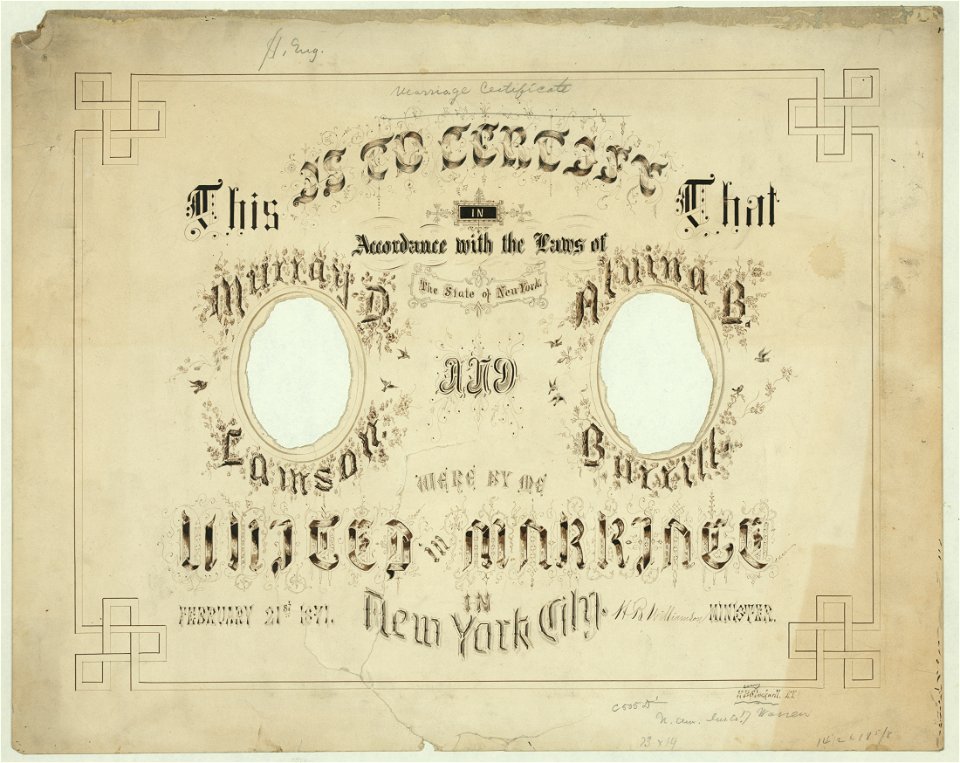 H. Eng.
Marriage Certificate
This IS TO CERTIFY That
IN
Accordance with the Laws of
The State of New York
Murray D.
Lawson.
AND
Alvina B.
Burrill.
WERE BY ME
UNITED IN MARRIAGE
FEBRUARY 21st 1871.
IN
New York City.
H R Williamson MINISTER.
C505 D'
N. am.
23 x 19